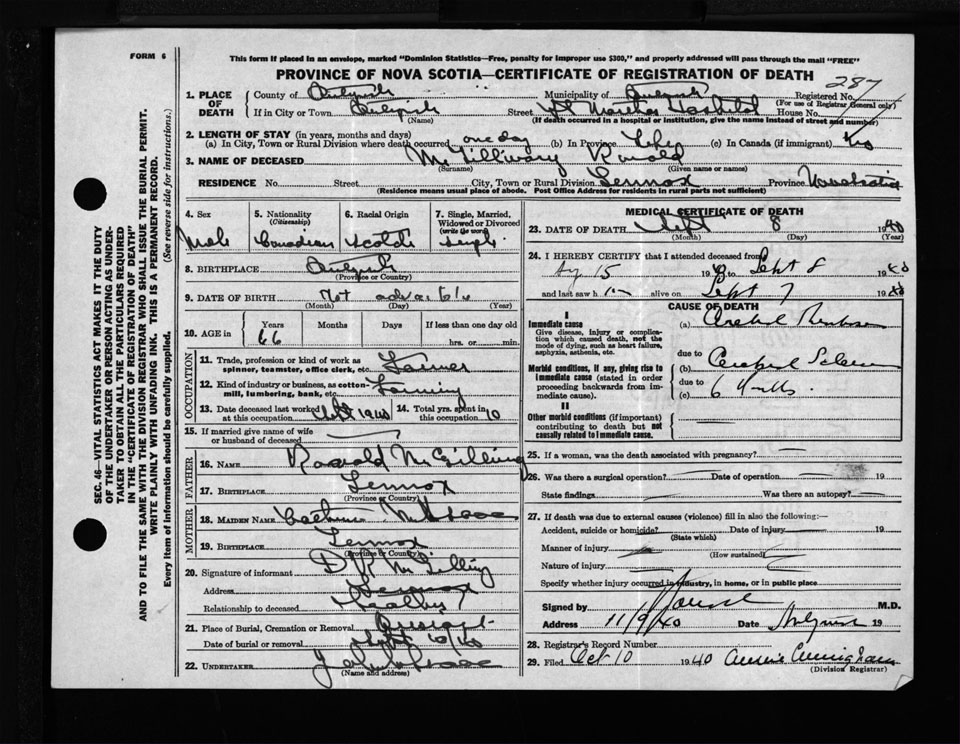 FORM 6
This form if placed in an envelope, marked "Dominion Statistics—Free, penalty for improper use $300," and properly addressed will pass through the mail "FREE"
PROVINCE OF NOVA SCOTIA—CERTIFICATE OF REGISTRATION OF DEATH
287
1. PLACE OF DEATH
County of
Municipality of
Registered No.
(For use of Registrar General only)
If in City or Town
(Name)
Street St Martha Hospital House No.
(If death occurred in a hospital or institution, give the name instead of street and number)
2. LENGTH OF STAY (in years, months and days)
(a) In City, Town or Rural Division where death occurred one day (b) In Province Life (c) In Canada (if immigrant) No
3. NAME OF DECEASED McGillivary Ronald
(Surname) (Given name or names)
RESIDENCE No. Street City, Town or Rural Division Lennox Province Nova Scotia
(Residence means usual place of abode. Post Office Address for residents in rural parts not sufficient)
4. Sex
Male
5. Nationality (Citizenship)
Canadian
6. Racial Origin
Scotch
7. Single, Married, Widowed or Divorced (write the word)
Single
8. BIRTHPLACE
(Province or Country)
9. DATE OF BIRTH
(Month) (Day) (Year)
10. AGE in
Years Months Days If less than one day old
66 hrs. or min.
OCCUPATION
11. Trade, profession or kind of work as spinner, teamster, office clerk, etc. Farmer
12. Kind of industry or business, as cotton-mill, lumbering, bank, etc. Farming
13. Date deceased last worked at this occupation Sept 1940
14. Total yrs. spent in this occupation 10
15. If married give name of wife or husband of deceased
FATHER
16. NAME Ronald McGilling
17. BIRTHPLACE Lennox
(Province or Country)
MOTHER
18. MAIDEN NAME McIsaac
19. BIRTHPLACE Lennox
(Province or Country)
20. Signature of informant D R McGilling
Address Lennox
Relationship to deceased brother
21. Place of Burial, Cremation or Removal
Date of burial or removal Sept 10/40
22. UNDERTAKER
(Name and address)
MEDICAL CERTIFICATE OF DEATH
23. DATE OF DEATH Sept 8 1940
(Month) (Day) (Year)
24. I HEREBY CERTIFY that I attended deceased from
15 19 to Sept 8 1940
and last saw h alive on Sept 7 1940
CAUSE OF DEATH
I
Immediate cause
Give disease, injury or complication which caused death, not the mode of dying, such as heart failure, asphyxia, asthenia, etc.
(a)
due to
Morbid conditions, if any, giving rise to immediate cause (stated in order proceeding backwards from immediate cause).
(b)
due to
(c) 6 months
II
Other morbid conditions (if important) contributing to death but not causally related to immediate cause.
25. If a woman, was the death associated with pregnancy?
26. Was there a surgical operation? Date of operation 19
State findings Was there an autopsy?
27. If death was due to external causes (violence) fill in also the following:—
Accident, suicide or homicide? Date of injury 19
(State which)
Manner of injury
(How sustained)
Nature of injury
Specify whether injury occurred in industry, in home, or in public place
Signed by M.D.
Address 11/9/40 Date 19
28. Registrar's Record Number
29. Filed Oct 10 1940 Cunningham
(Division Registrar)
SEC. 46—VITAL STATISTICS ACT MAKES IT THE DUTY
OF THE UNDERTAKER OR PERSON ACTING AS UNDER-
TAKER TO OBTAIN ALL THE PARTICULARS REQUIRED
IN THE "CERTIFICATE OF REGISTRATION OF DEATH"
AND TO FILE THE SAME WITH THE DIVISION REGISTRAR WHO SHALL ISSUE THE BURIAL PERMIT.
WRITE PLAINLY WITH UNFADING INK. THIS IS A PERMANENT RECORD.
Every item of information should be carefully supplied. (See reverse side for instructions.)